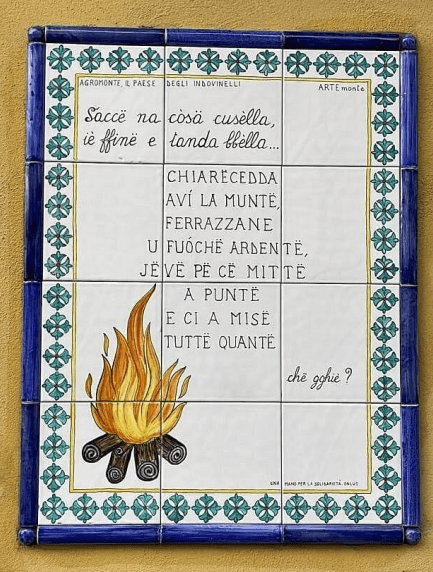 AGROMONTE, IL PAESE DEGLI INDOVINELLI
ARTEmonte
Saccë na còsä cusèlla,
iè ffinë e tanda bbèlla...
CHIARËCEDDA
AVÍ LA MUNTË,
FERRAZZANE
U FUÓCHË ARDENTË,
JËVË PË CË MITTË
A PUNTË
E CI A MISË
TUTTË QUANTË
chë gghiè ?
MANO PER LA SOLIDARIETÀ. ONLUS